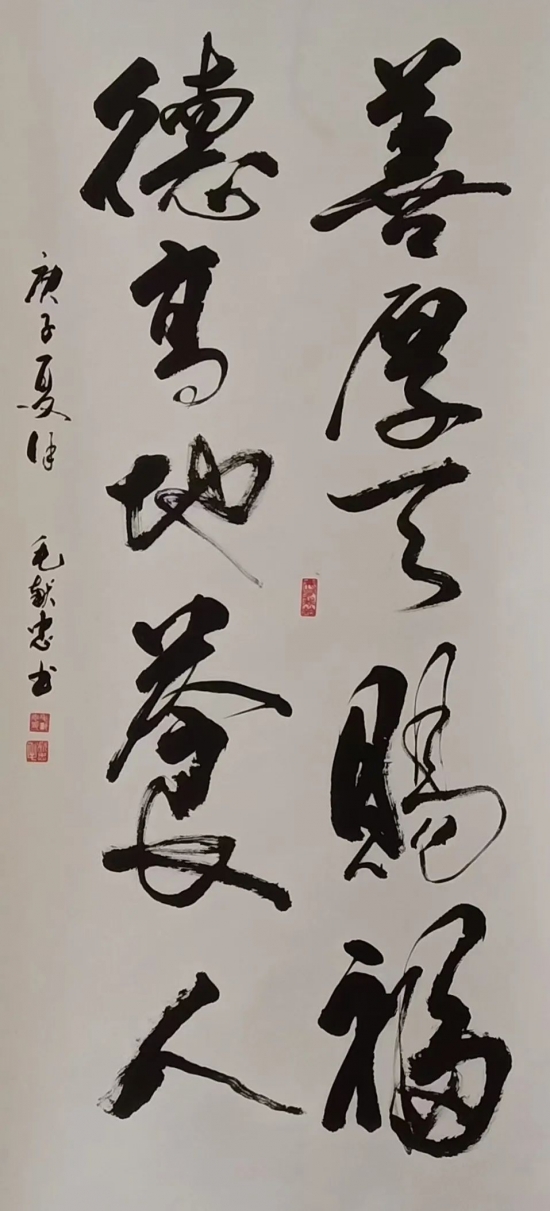 善厚天赐福
德高地养人
庚子夏 毛献忠书